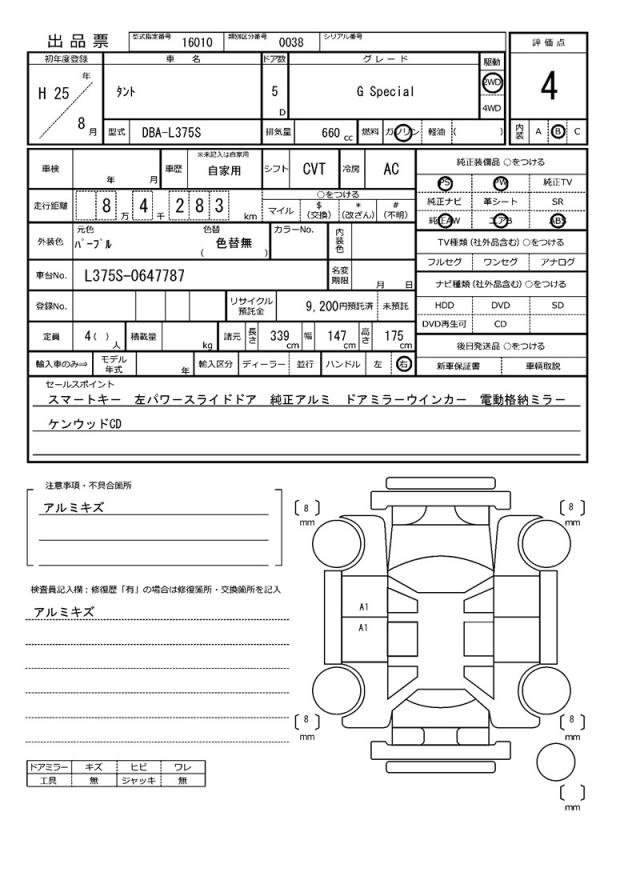 出品票 型式指定番号 16010 類別区分番号 0038 シリアル番号
評価点
4
初年度登録 車名 ドア数 グレード 駆動
H 25 年 8 月
タント
5 D
G Special
2WD
4WD
型式 DBA-L375S 排気量 660 cc 燃料 ガソリン 軽油 ( ) 内装 A B C
車検 年 月 車歴 ※未記入は自家用 自家用 シフト CVT 冷房 AC
純正装備品 ○をつける
PS PW 純正TV
純正ナビ 革シート SR
純正AW エアB ABS
走行距離 8 万 4 千 2 8 3 km
○をつける
マイル $ (交換) * (改ざん) # (不明)
外装色 元色 パープル 色替 色替無 ( ) カラーNo. 内装色
TV種類 (社外品含む) ○をつける
フルセグ ワンセグ アナログ
車台No. L375S-0647787 名変期限 月 日
ナビ種類 (社外品含む) ○をつける
HDD DVD SD
DVD再生可 CD
登録No. リサイクル預託金 9,200円預託済 未預託
定員 4( ) 人 積載量 kg 諸元 長さ 339 cm 幅 147 cm 高さ 175 cm
後日発送品 ○をつける
新車保証書 車輌取説
輸入車のみ⇒ モデル年式 年 輸入区分 ディーラー 並行 ハンドル 左 右
セールスポイント
スマートキー 左パワースライドドア 純正アルミ ドアミラーウインカー 電動格納ミラー
ケンウッドCD
注意事項・不具合箇所
アルミキズ
検査員記入欄：修復歴「有」の場合は修復箇所・交換箇所を記入
アルミキズ
8 mm
8 mm
A1
A1
8 mm
8 mm
mm
ドアミラー キズ ヒビ ワレ
工具 無 ジャッキ 無